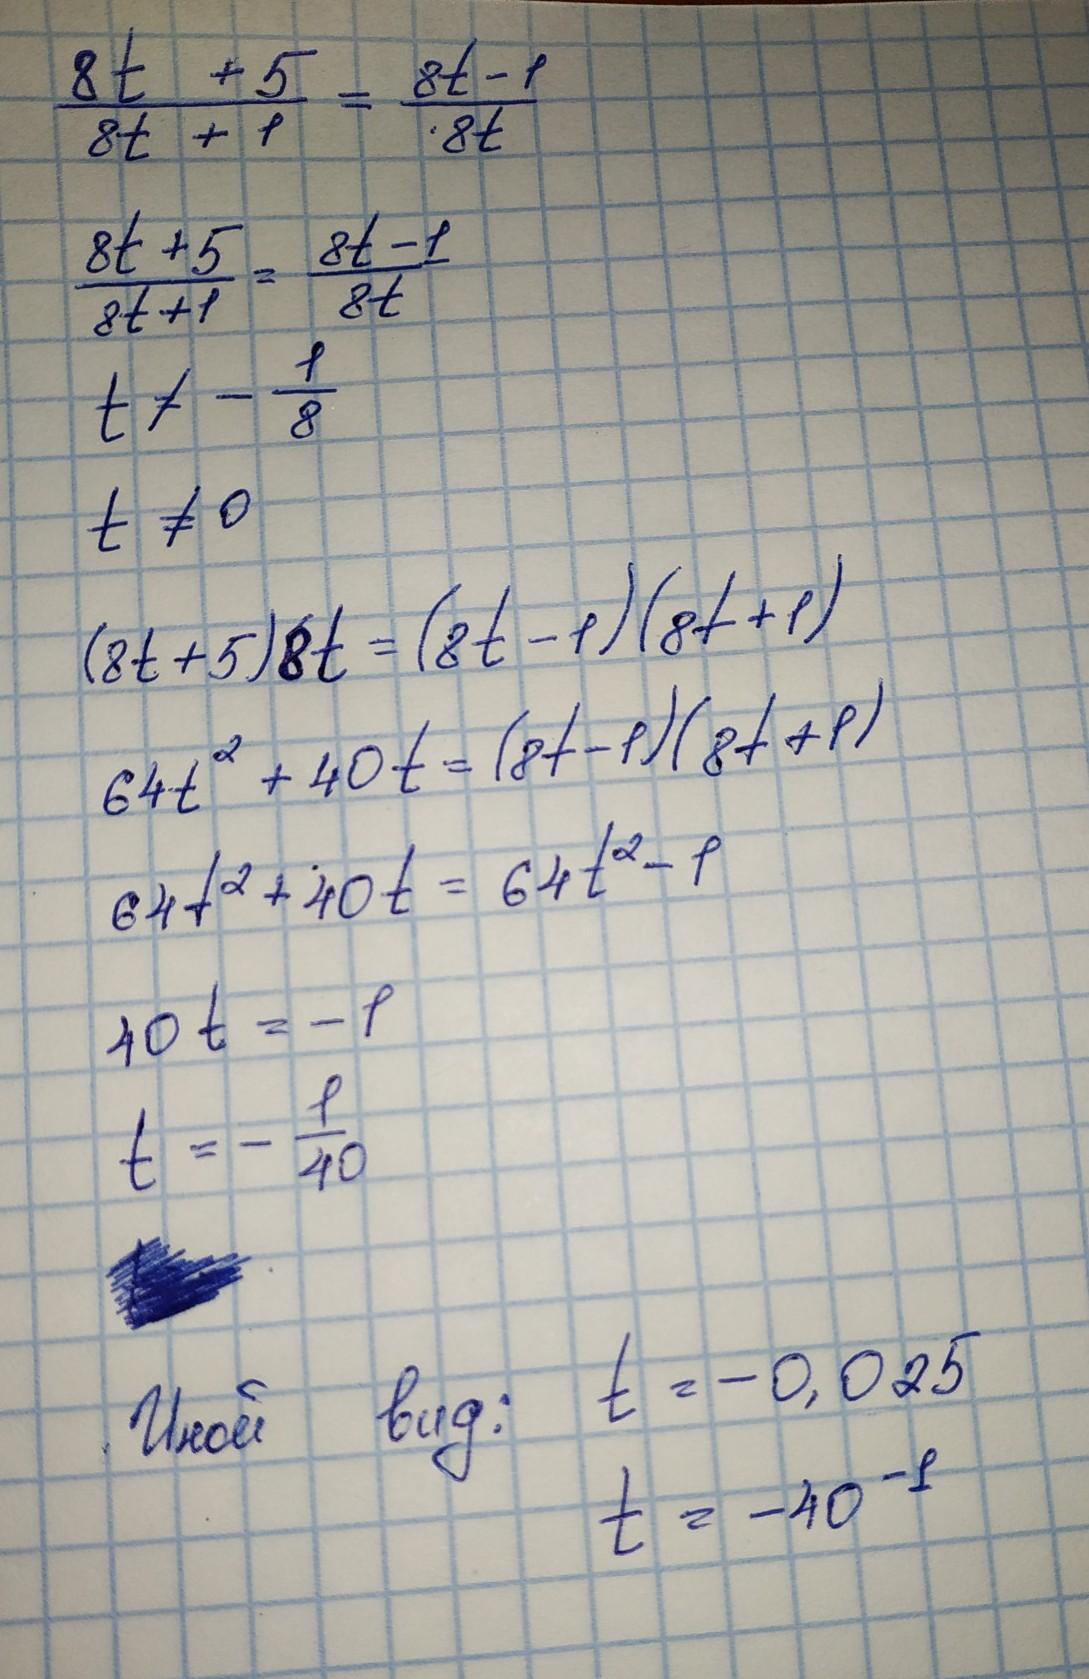 (8t + 5)/(8t + 1) = (8t - 1)/(8t)
(8t + 5)/(8t + 1) = (8t - 1)/(8t)
t ≠ - 1/8
t ≠ 0
(8t + 5)8t = (8t - 1)(8t + 1)
64t² + 40t = (8t - 1)(8t + 1)
64t² + 40t = 64t² - 1
40t = - 1
t = - 1/40
Иной вид: t = - 0,025
t = - 40⁻¹